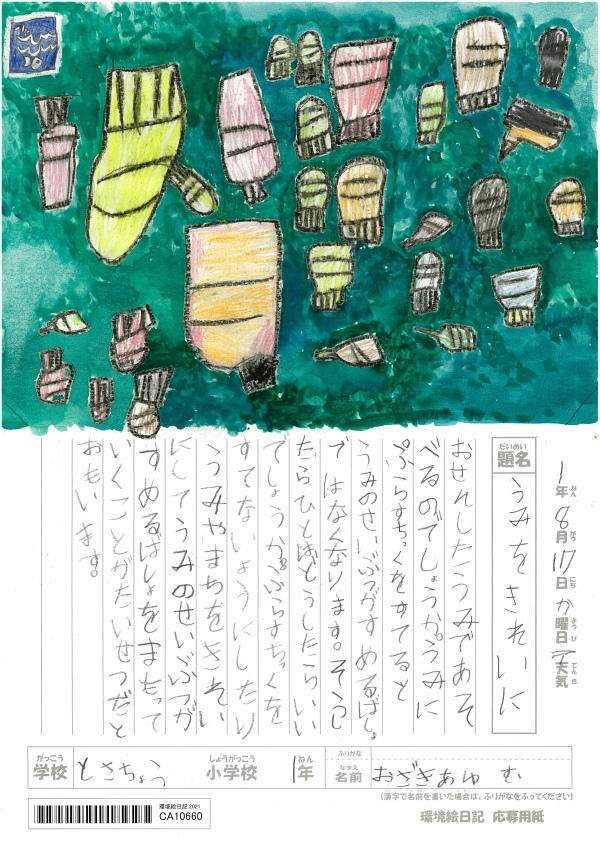 1年8月17日か曜日 天気
ねん がつ にち ようび てんき
だいめい
題名
うみをきれいに
おせんしたうみであそ
べるのでしょうか。うみに
ぷらすちっくをすてると
うみのせいぶつがすめるばしょ
ではなくなります。そうし
たらひとはどうしたらいい
でしょうか。ぷらすちっくを
すてないようにしたり
うみやまちをきれい
にしてうみのせいぶつが
すめるばしょをまもって
いくことがたいせつだと
おもいます。
がっこう しょうがっこう ねん ふりがな なまえ
学校 とさちょう 小学校 1年 名前 おざきあゆむ
(漢字で名前を書いた場合は、ふりがなをふってください)
環境絵日記 2021
CA10660
環境絵日記 応募用紙